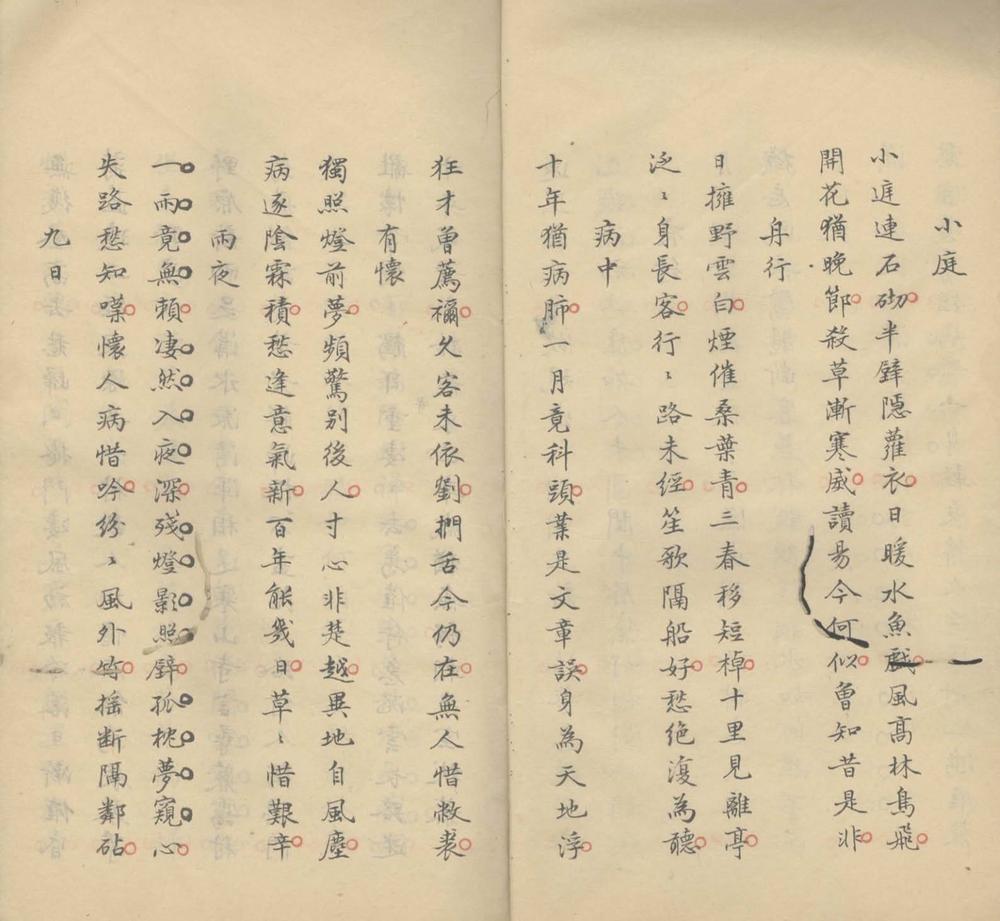 小庭
小庭連石砌半肆隠蘿衣日暖水魚戲風高林鳥飛
開花猶晚節殺草漸寒威讀易今何似曾知昔是非
舟行
日擁野雲白煙催桑葉青三春移短棹十里見離亭
泛〻身長客行〻路未經笙歌隔船好愁絶復為聽
病中
十年猶病肺一月竟科頭業是文章誤身為天地浮
狂才曾薦禰久客未依劉捫舌今仍在無人惜敝裘
有懷
獨照燈前夢頻驚别後人寸心非楚越異地自風塵
病逐陰霖積愁逢意氣新百年能幾日草〻惜艱辛
雨夜
一雨竟無頼凄然入夜深殘燈影照壁孤枕夢窺心
失路愁知嘿懷人病惜吟紛〻風外竹摇斷隔鄰砧
九日